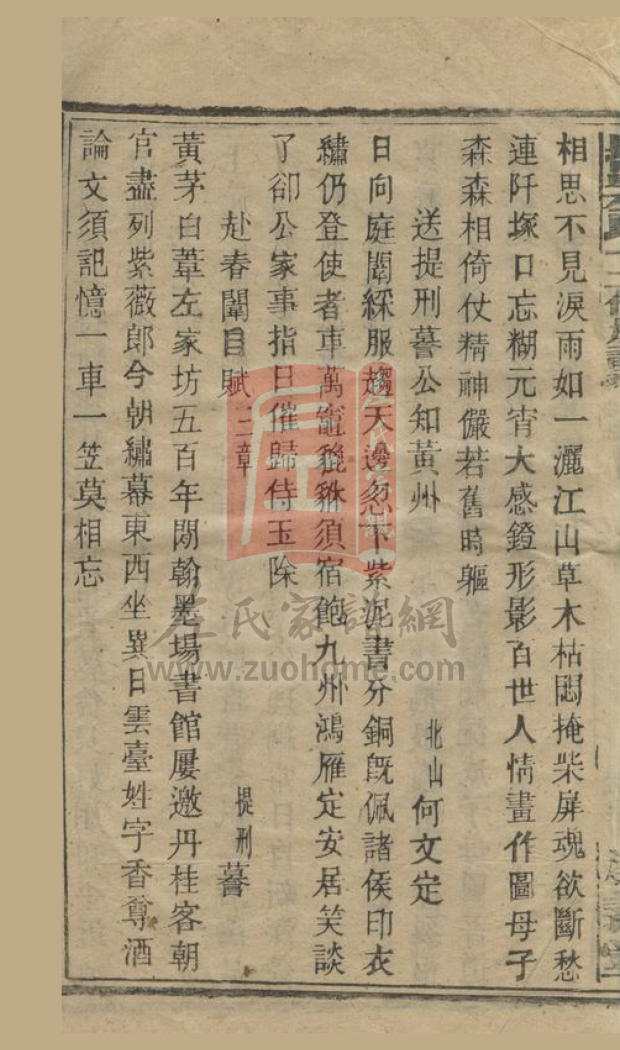 相思不見淚雨如一灑江山草木枯悶掩柴屏魂欲斷愁
連阡塚口忘糊元宵大感鐙形影百世人情畫作圖母子
森森相倚仗精神儼若舊時軀
送提刑謩公知黃州 北山何文定
日向庭闈綵服趨天邊忽下紫泥書分銅旣佩諸侯印衣
繡仍登使者車萬竈貔貅須宿飽九州鴻雁定安居笑談
了卻公家事指日催歸侍玉除
赴春闈自賦三章 提刑謩
黃茅白葦左家坊五百年閒翰墨場書館屢邀丹桂客朝
官盡列紫薇郎今朝繡幕東西坐異日雲臺姓字香尊酒
論文須記憶一車一笠莫相忘
左氏家譜網
www.zuohome.com